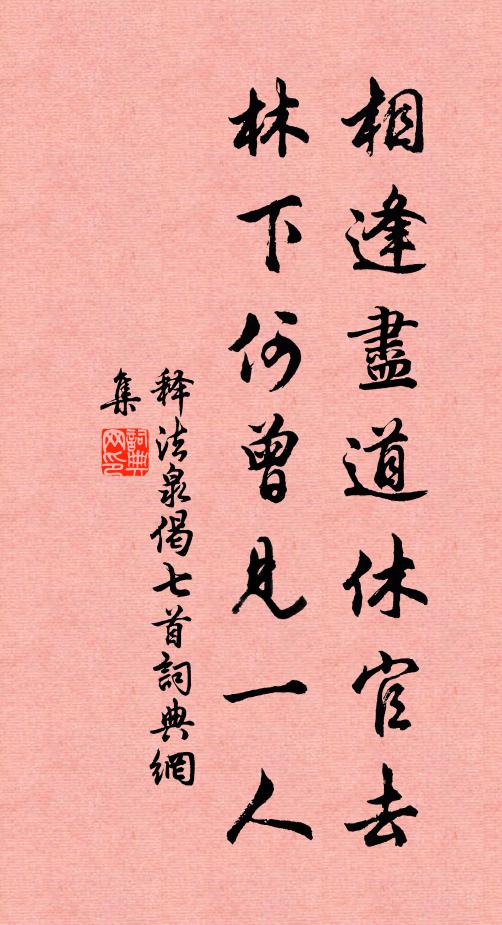 相逢盡道休官去
林下何曾見一人
释法泉偈七首詞典網
集
詞典网印